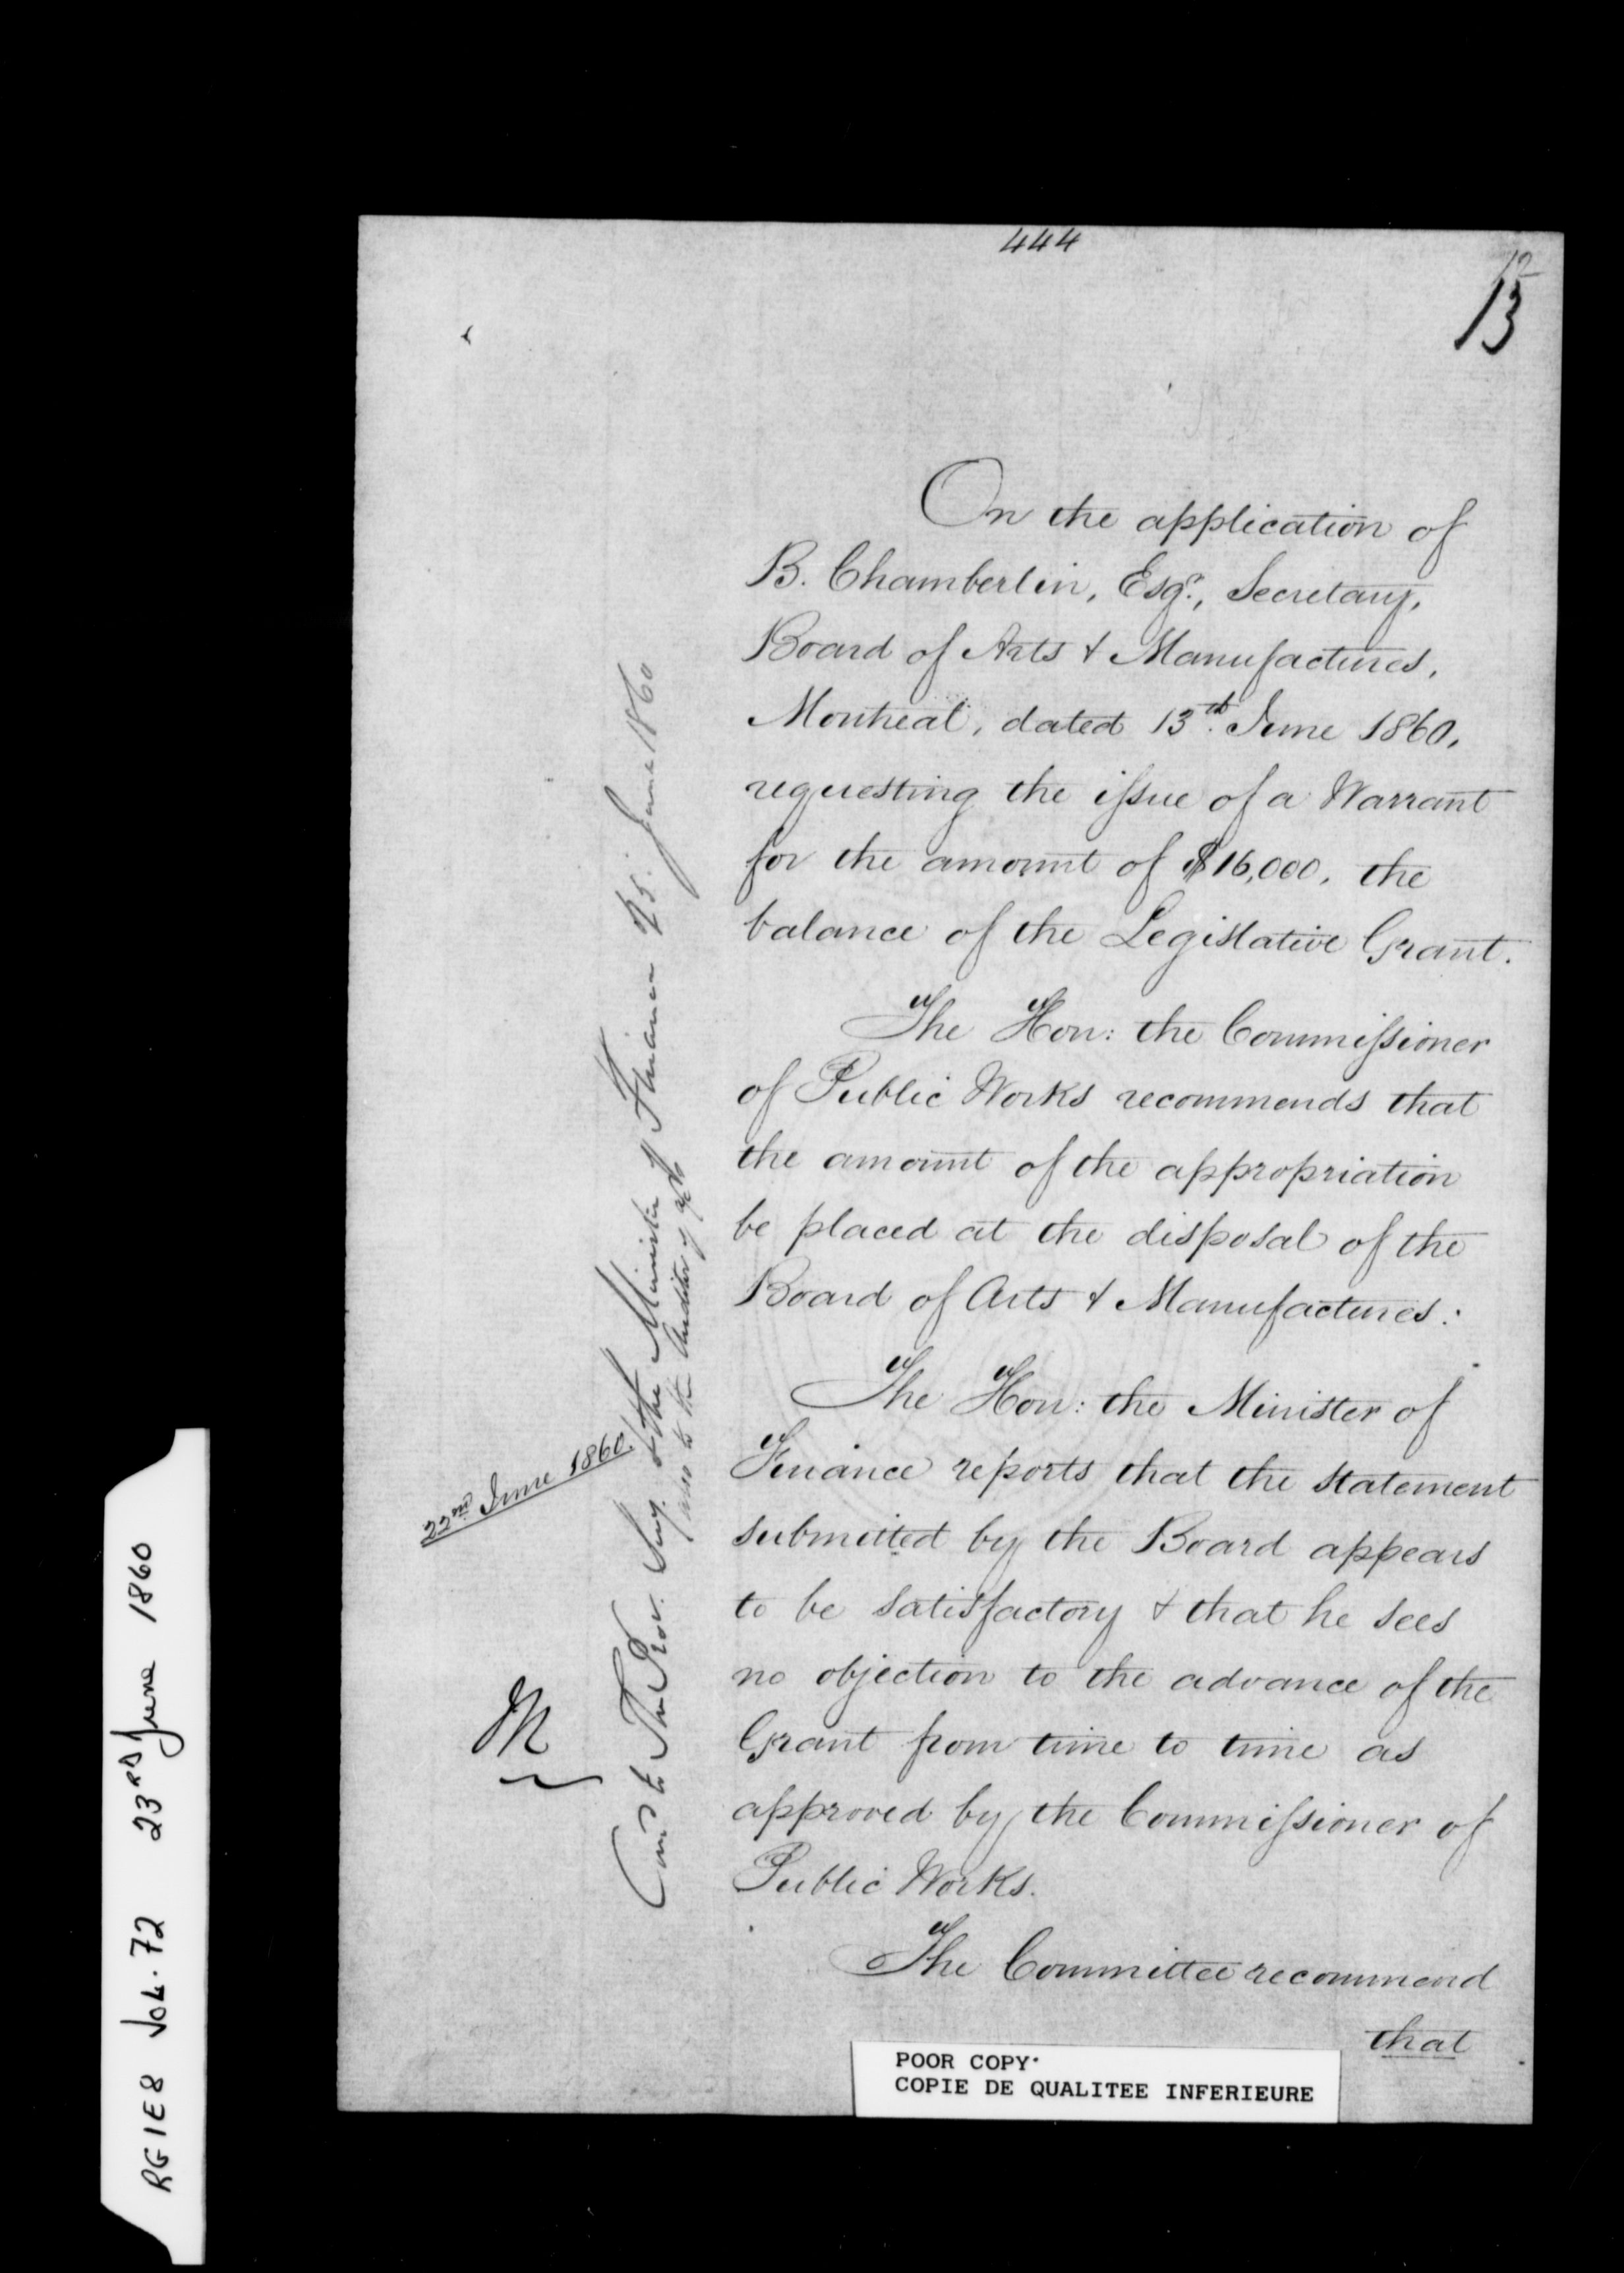 444
13
On the application of
B. Chamberlin, Esqr., Secretary,
Board of Arts & Manufactures,
Montreal, dated 13th. June 1860,
requesting the issue of a Warrant
for the amount of $16,000, the
balance of the Legislative Grant.
The Hon: the Commissioner
of Public Works recommends that
the amount of the appropriation
be placed at the disposal of the
Board of Arts & Manufactures:
The Hon: the Minister of
Finance reports that the statement
submitted by the Board appears
to be satisfactory & that he sees
no objection to the advance of the
Grant from time to time as
approved by the Commissioner of
Public Works.
The Committee recommend
that
22nd June 1860.
M
to The Prov. Secy. & the Minister of Finance 25. June 1860
also to the Auditor
RG1E8 VOL. 72 23RD June 1860
POOR COPY
COPIE DE QUALITEE INFERIEURE